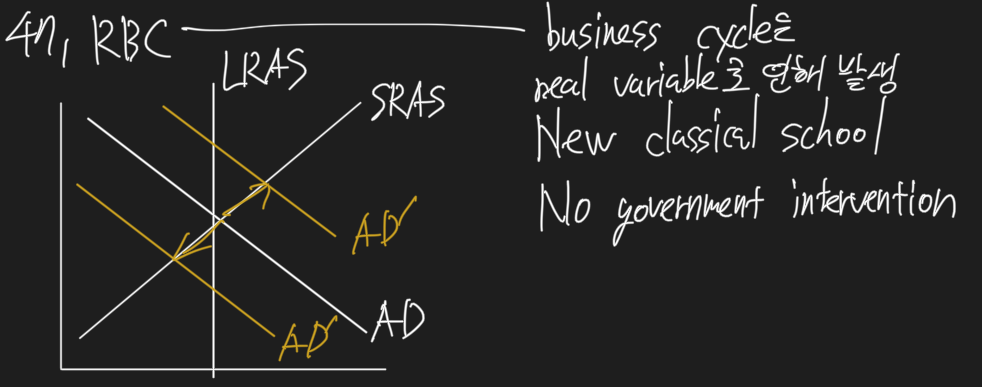 4n, RBC
business cycle은
real variable로 인해 발생
New classical school
No government intervention
LRAS
SRAS
AD'
AD
AD'